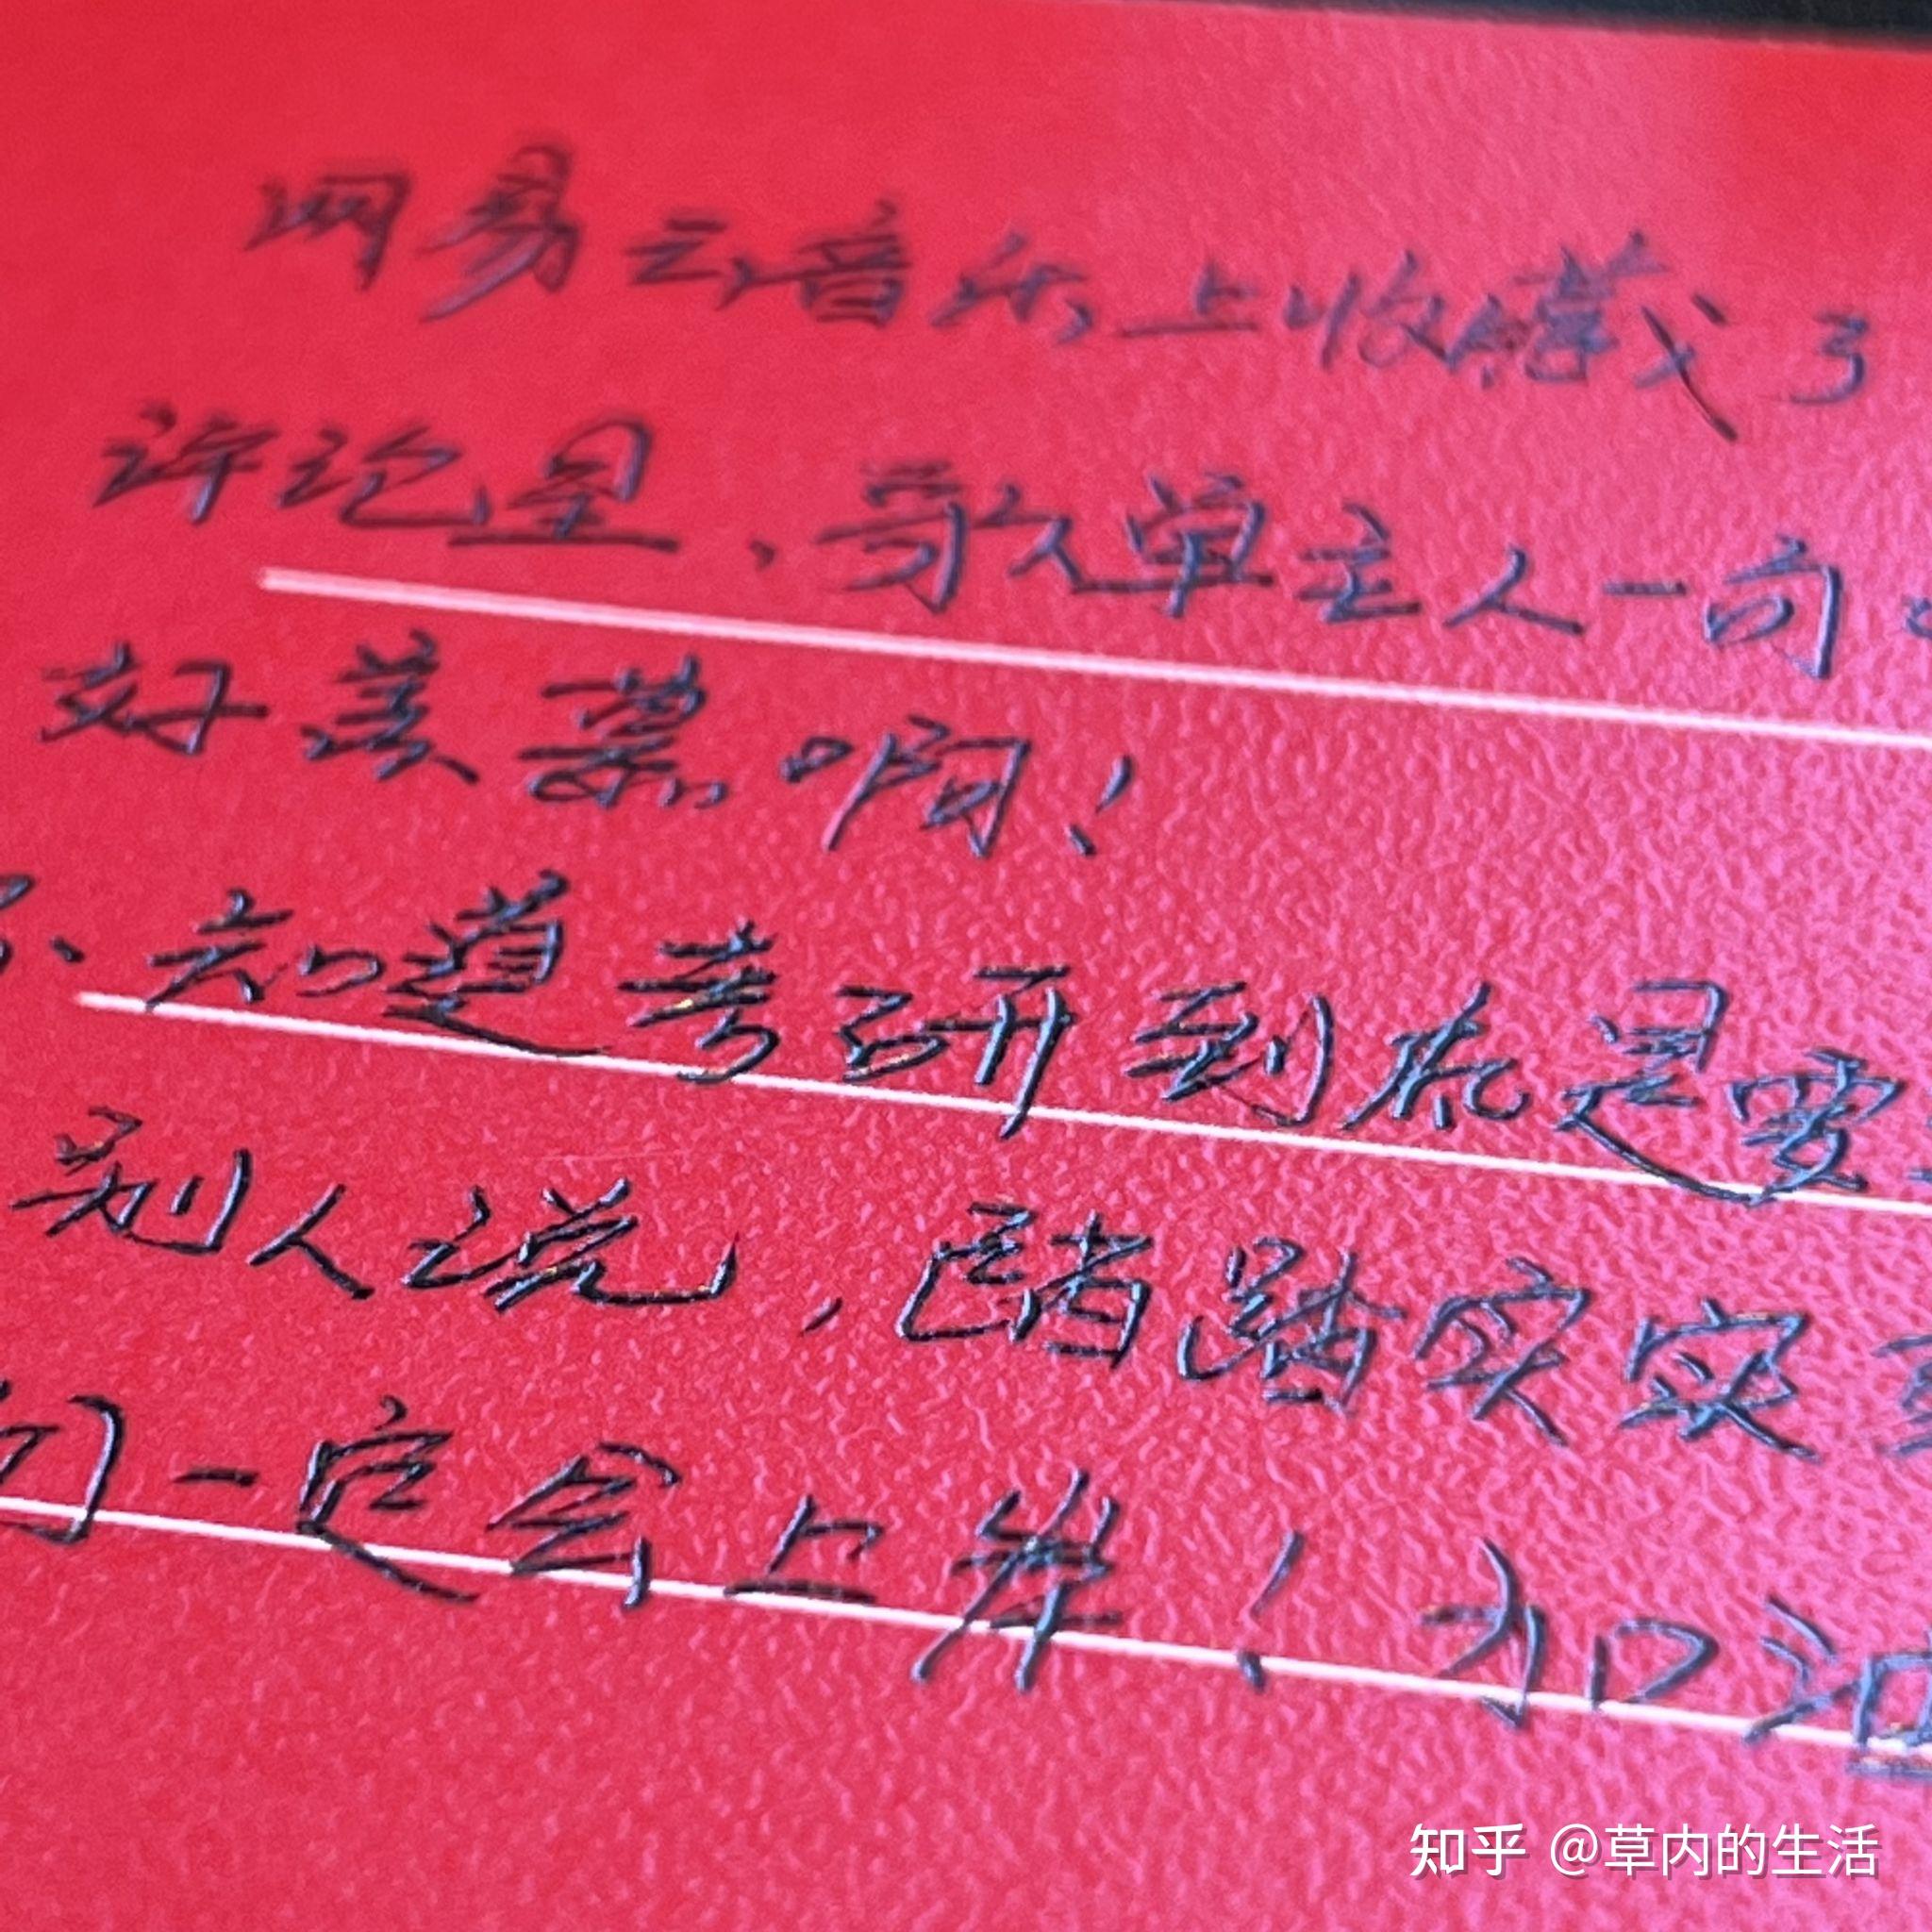 网易云音乐上收藏了
许论星，歌单主人一句
好羡慕啊！
不知道考研到底是要
别人说，踏踏实实
们一定会上岸！加油
知乎 @草内的生活